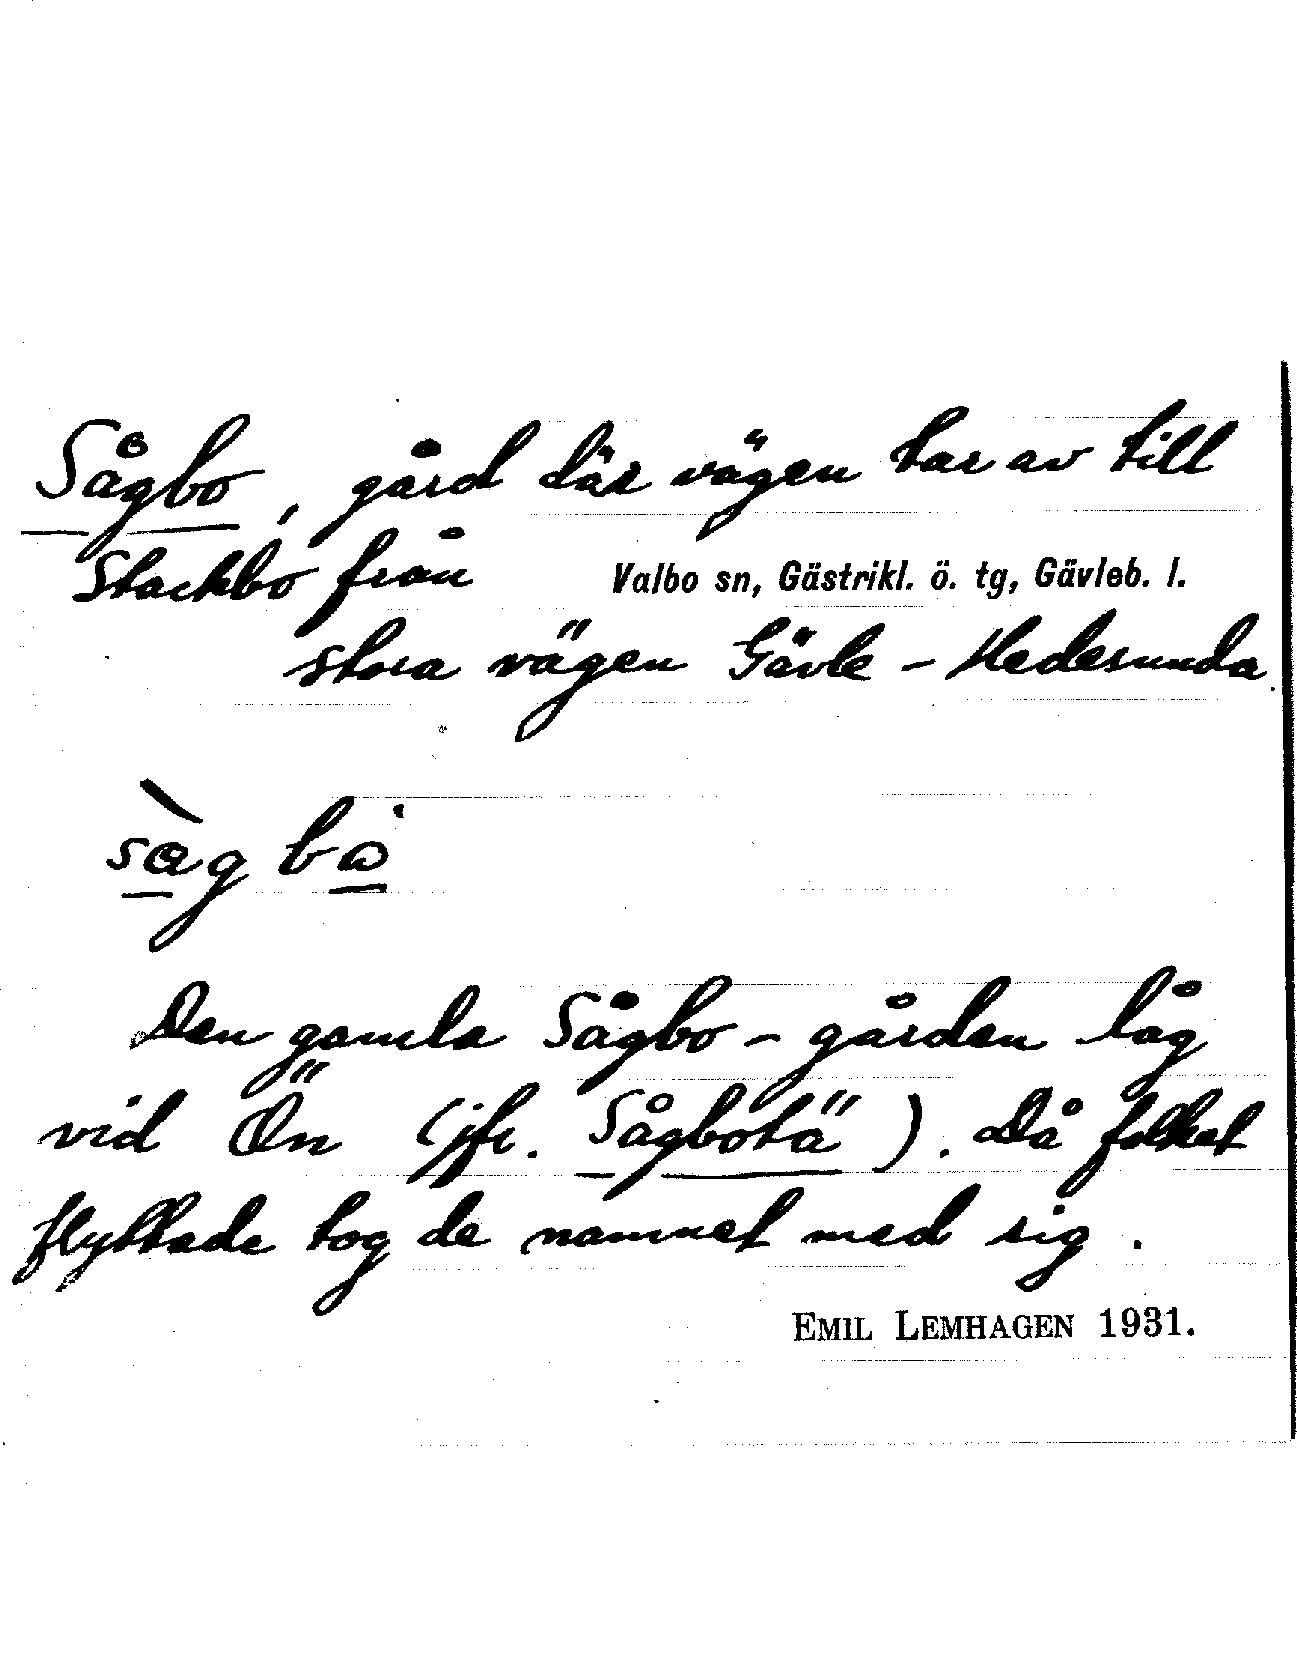 Sågbo, gård där vägen tar av till
Stackbo från Valbo sn, Gästrikl. ö. tg, Gävleb. l.
stora vägen Gävle - Hedesunda.
Den gamla Sågbo-gården låg
vid Ön (jfr. Sågbotä). Då folket
flyttade tog de namnet med sig.
EMIL LEMHAGEN 1931.